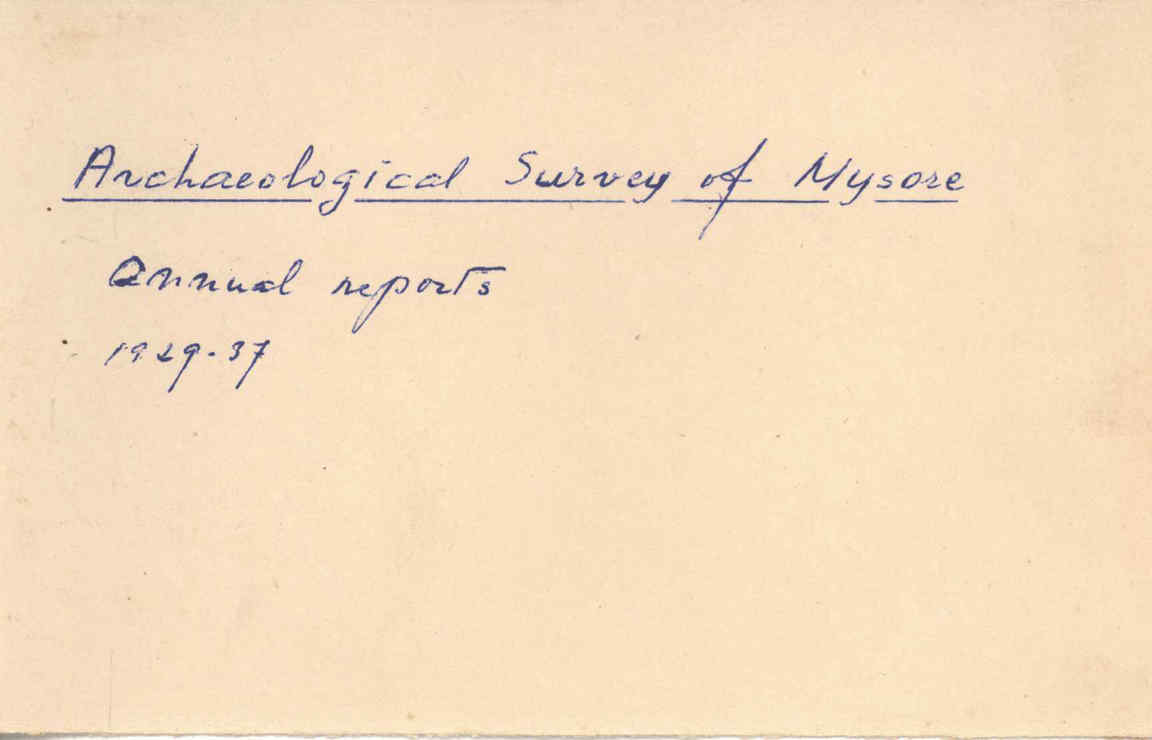 Archaeological Survey of Mysore
Annual reports
1929-37